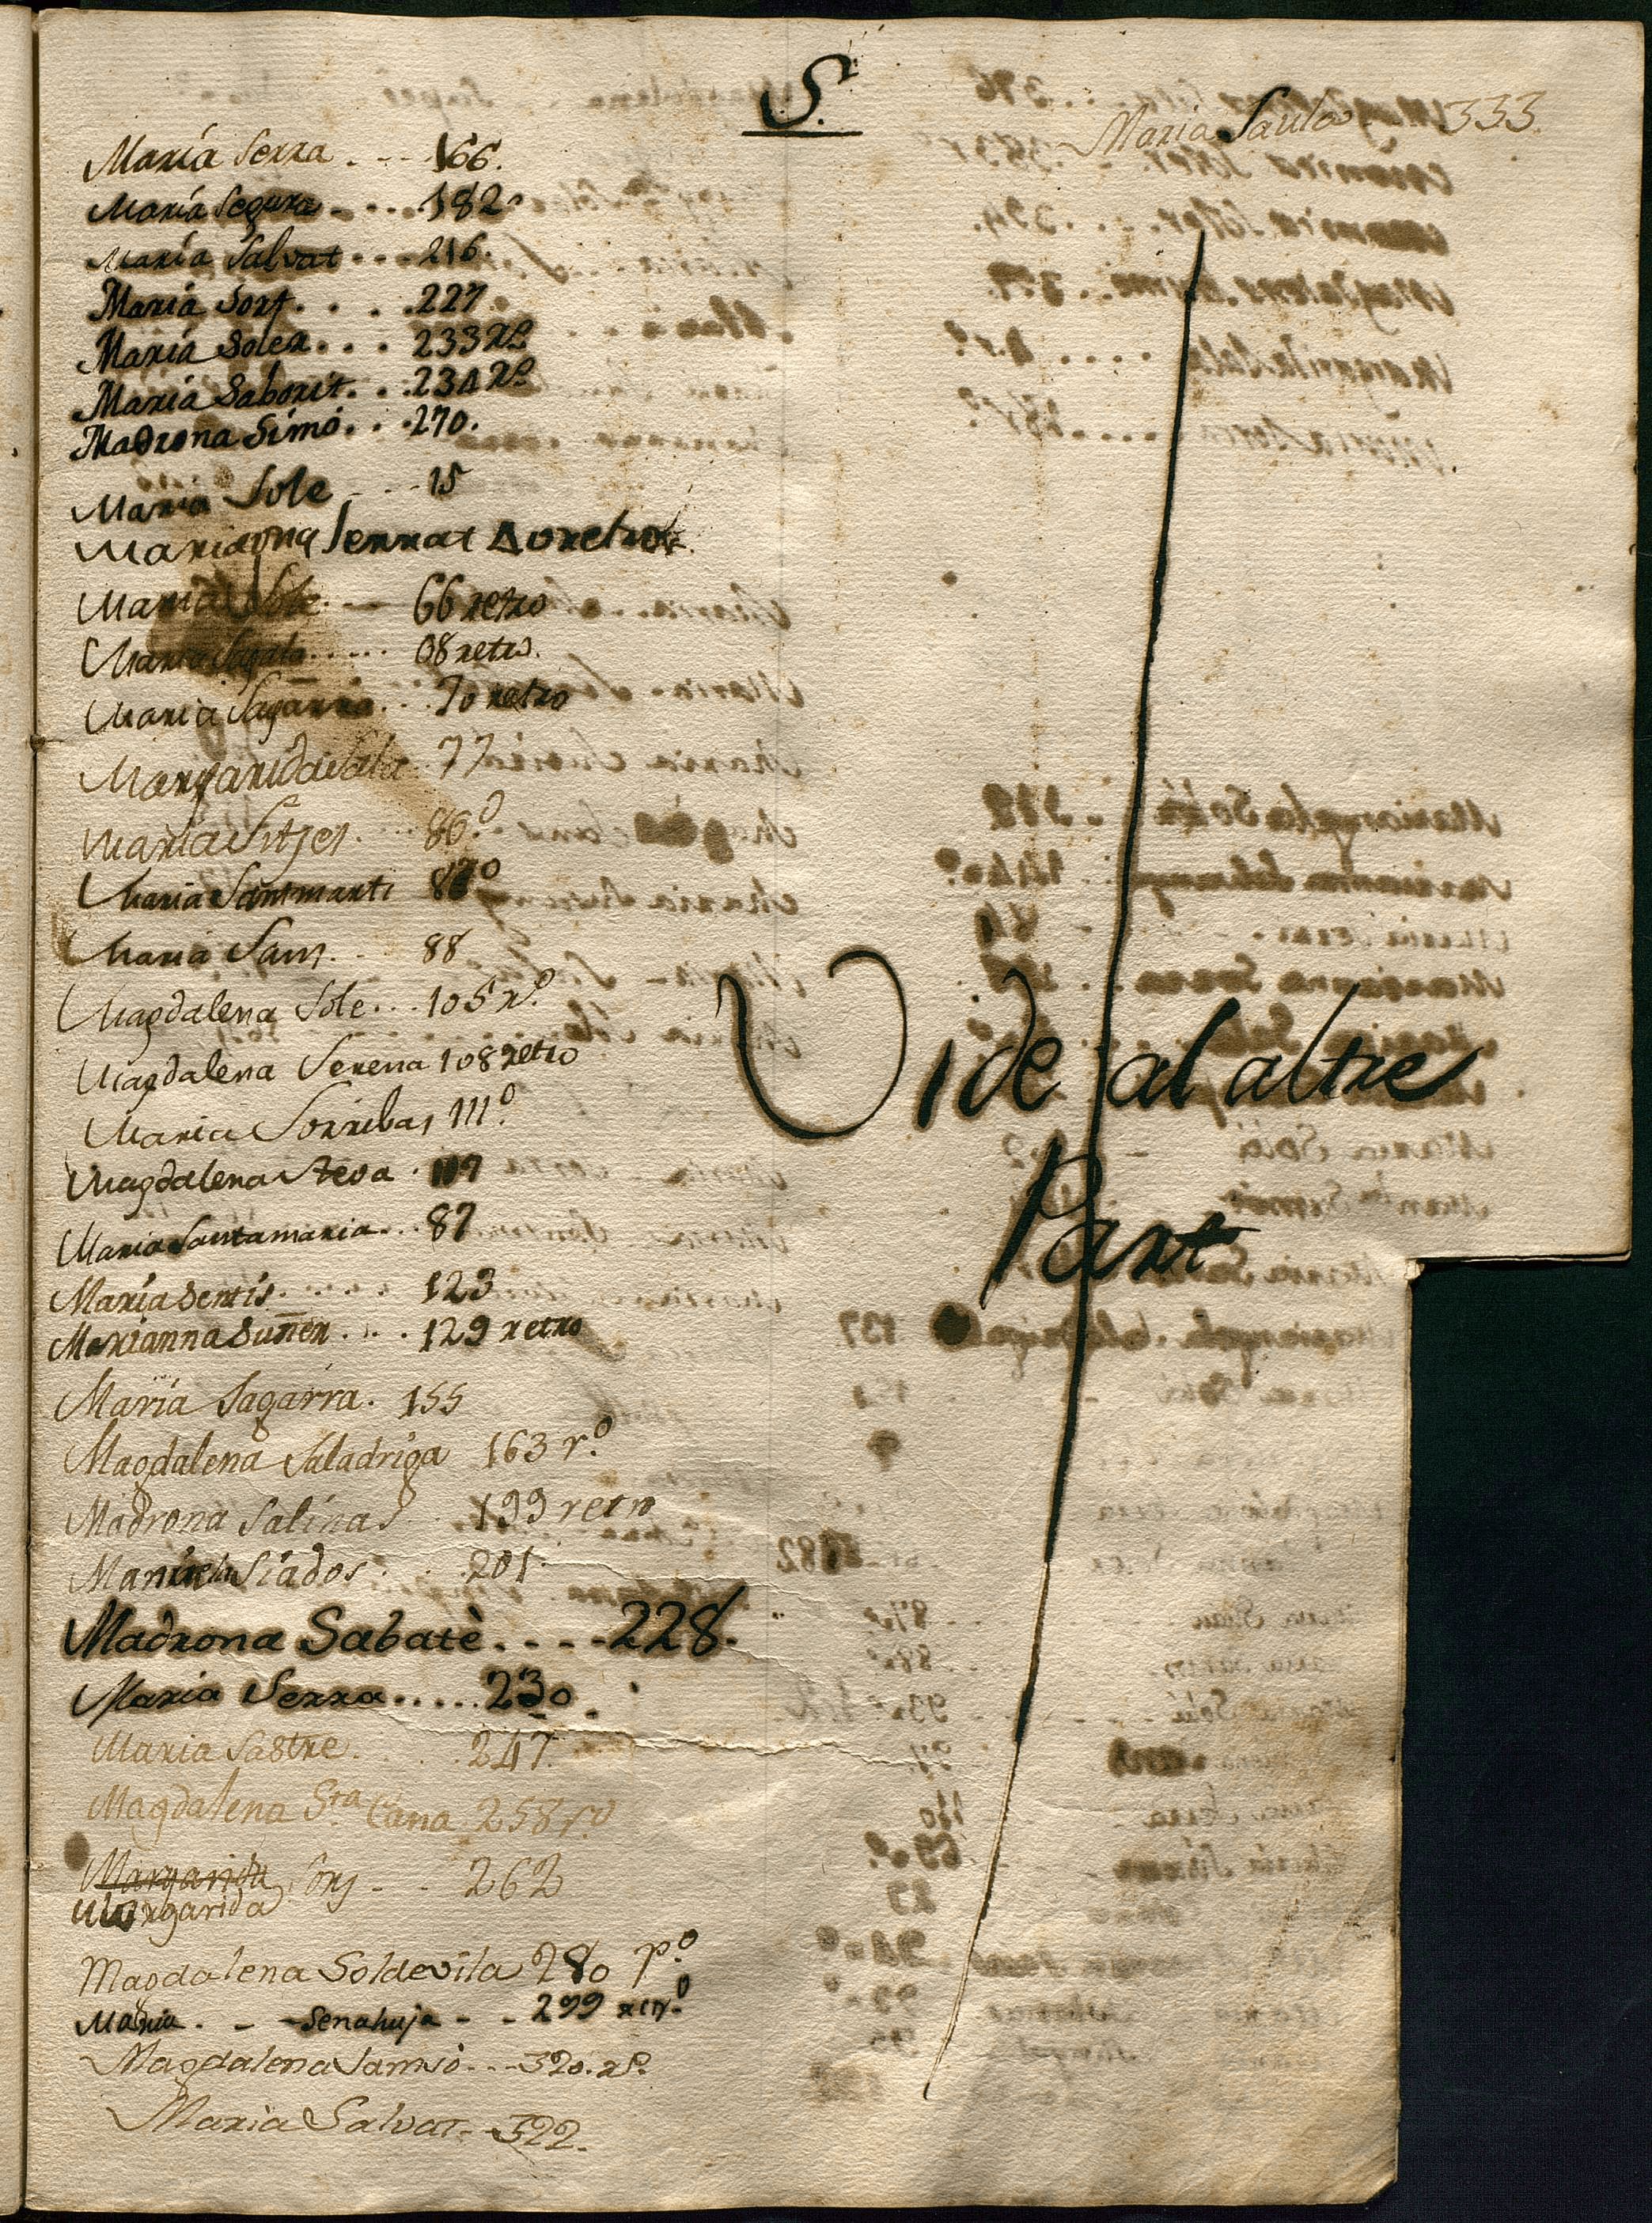 S.
María Serra . - - - 166.
María Segura - . - . . 182
María Salvat . . . . . 216.
María Sort. . . . . 227.
María Soler. . . . 233 rº
María Saborit. . . 234 rº
Madrona Simó. . . 270.
Maria Sole - - - 15
Serrat 40 retro
Maria Sole. - - 66 retro
Maria 68 retro.
Maria Sagarra. . . 70 retro
Margarida Sala 77
Maria Sitjes. 86º
Maria Santmarti 87º
Maria Sans. - 88
Magdalena Sole. . . 105 rº
Magdalena Serena 108 retro
Maria Sorribas 111º
Magdalena Steva . 117
Maria Santamaria. . . 87
María Sentis. . . . . . 123
Marianna Suñer. . . . 129 retro
Maria Sagarra. 155
Magdalena Saladriga 163 r.º
Madrona Salinas . . 199 retro
Manuela Siados . . . 201.
Madrona Sabatè. . . . 228.
Maria Serra. . . . . 230.
Maria Sastre. . . . 247.
Magdalena Sta. Cana 258 rº
Margarida 262
Margarida
Magdalena Soldevila 280 rº
Maria. - - Senahuja - - 299 retrº
Magdalena Samsó. . - - 320. rº
Maria Salvat. - 322.
Maria Saula - 333.
Vide al altre
Part